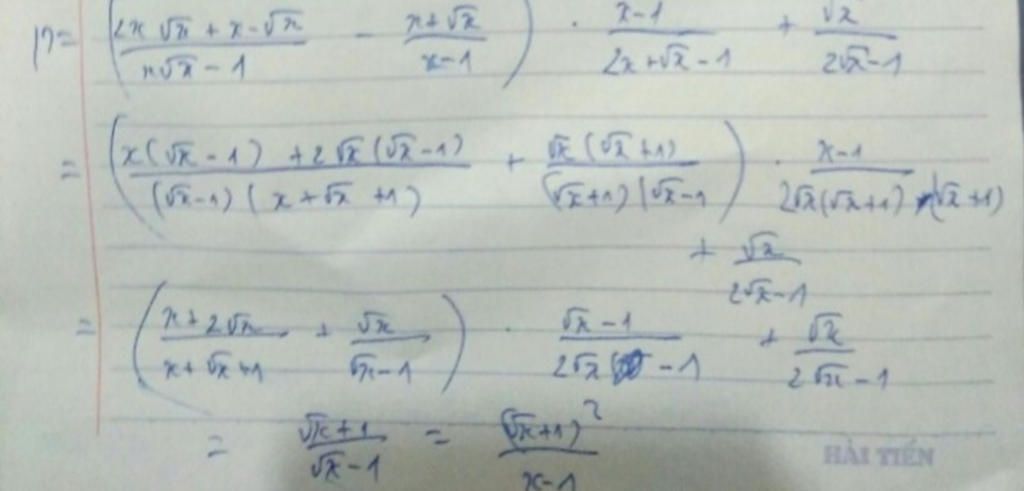 P = ( (2x√x + x - √x)/(x√x - 1) - (x + √x)/(x - 1) ) · (x - 1)/(2x + √x - 1) + √x/(2√x - 1)
= ( (x(√x - 1) + 2√x(√x - 1))/((√x - 1)(x + √x + 1)) + (√x(√x + 1))/((√x + 1)(√x - 1) ) · (x - 1)/(2√x(√x + 1) - (√x + 1))
+ √x/(2√x - 1)
= ( (x + 2√x)/(x + √x + 1) + √x/(√x - 1) ) · (√x - 1)/(2√x - 1) + √x/(2√x - 1)
= (√x + 1)/(√x - 1) = (√x + 1)²/(x - 1)
HẢI TIẾN